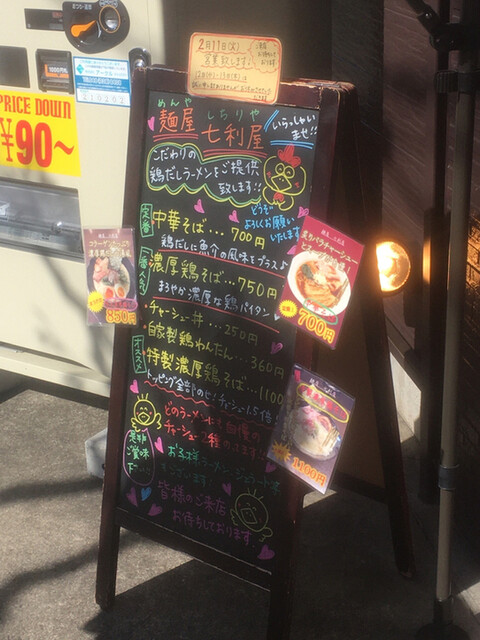 PRICE DOWN
¥90~
2月11日(火)
営業致します。
めんや しちりや
麺屋 七利屋
いらっしゃいませ!!
こだわりの
鶏だしラーメンをご提供
致します!!
どうぞ
よろしくお願い
いたします
定番
中華そば…700円
鶏だしに魚介の風味をプラス♪
一番人気
濃厚鶏そば…750円
まろやか濃厚な鶏パイタン
・チャーシュー丼…250円
・自家製鶏わんたん…360円
オススメ
特製濃厚鶏そば…1100
トッピング全部のせ
チャーシュー1.5倍!
どのラーメンにも自慢の
チャーシュー2種のってます!!
是非
ご賞味
下さい
お子様ラーメン、ジュース等
もございます
皆様のご来店
お待ちしております。
850円
炙りバラチャーシュー
700円
1100円